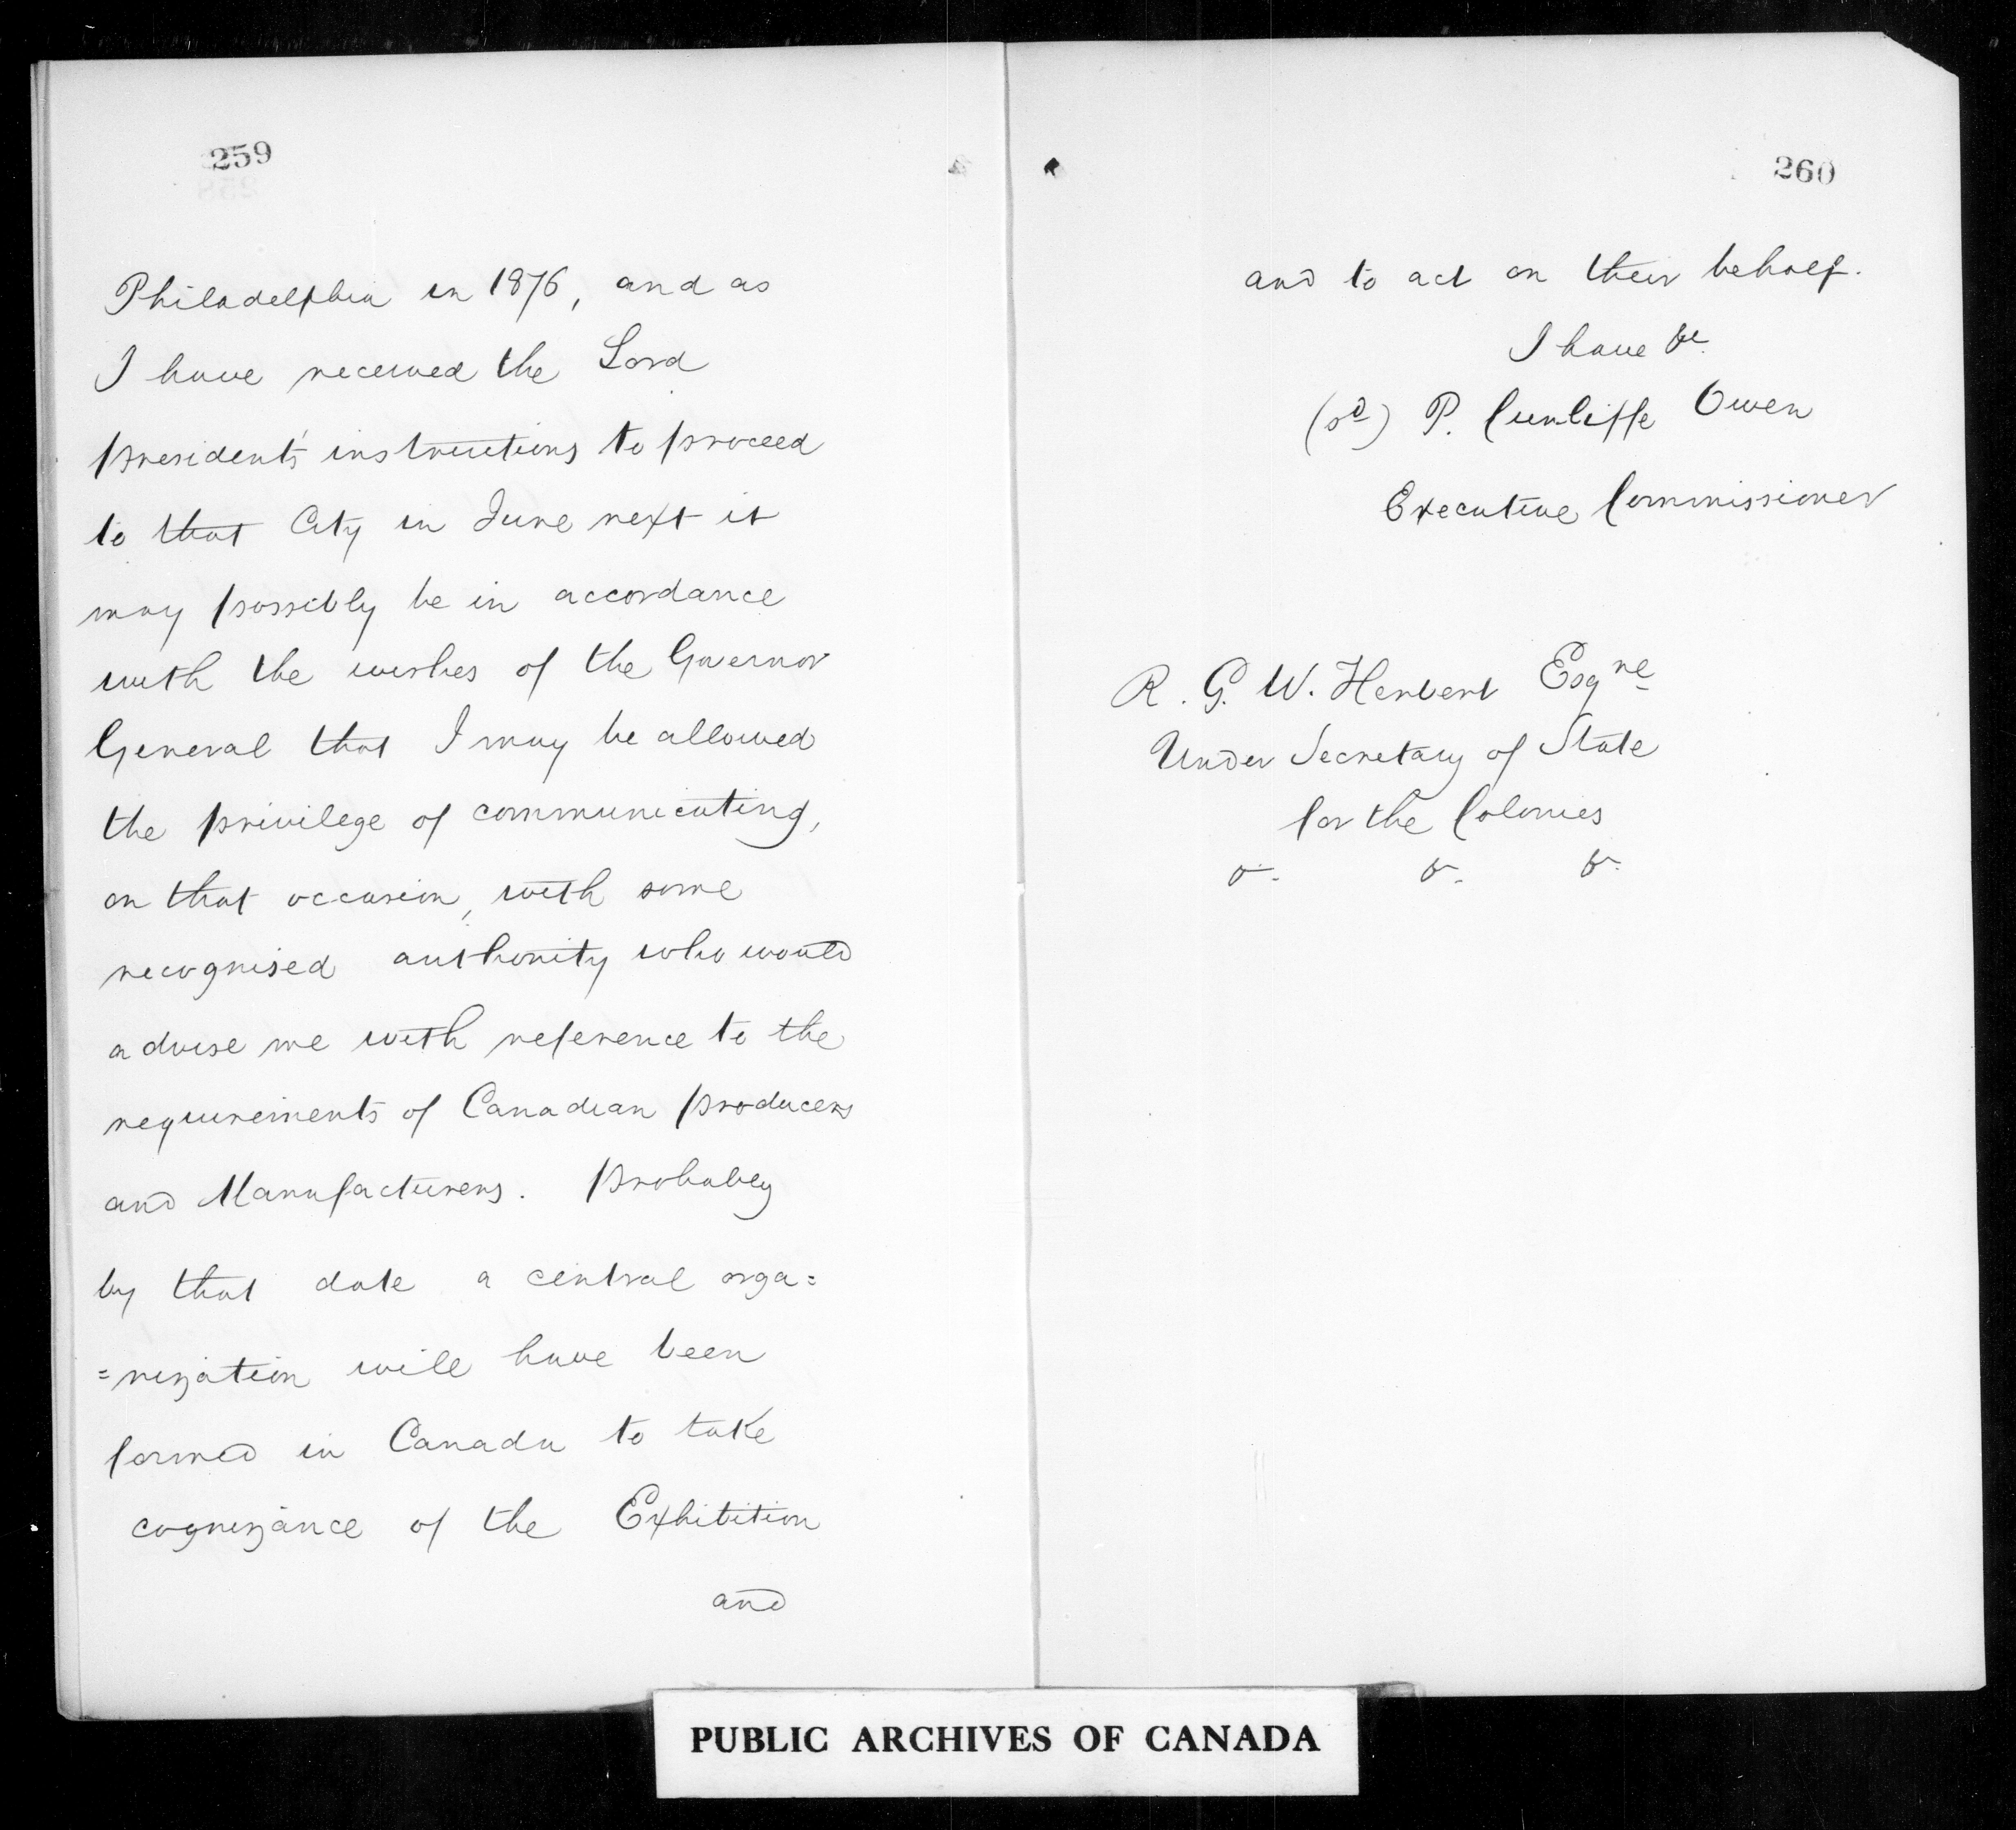 259
Philadelphia in 1876, and as
I have received the Lord
president's instructions to proceed
to that City in June next it
may possibly be in accordance
with the wishes of the Governor
General that I may be allowed
the privilege of communicating,
on that occasion, with some
recognised authority who would
advise me with reference to the
requirements of Canadian producers
and Manufacturers. Probably
by that date a central orga=
=nization will have been
formed in Canada to take
cognizance of the Exhibition
and
260
and to act on their behalf.
I have &c.
(sd) P. Cunliffe Owen
Executive Commissioner
R. G. W. Herbert Esqre
Under Secretary of State
for the Colonies
&. &. &.
PUBLIC ARCHIVES OF CANADA